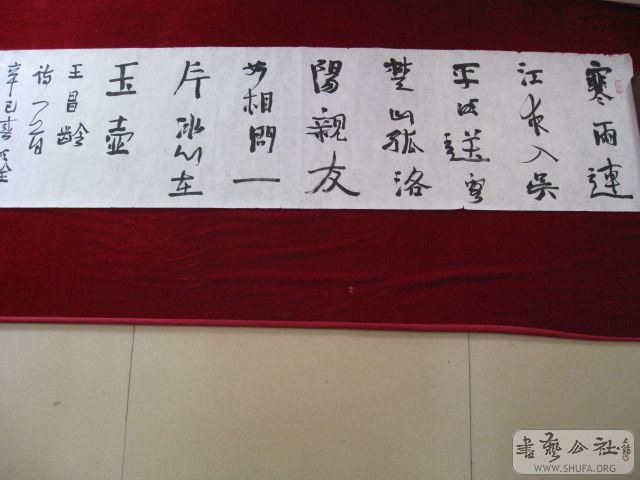 寒雨連
江夜入吳
平明送客
楚山孤洛
陽親友
如相問一
片冰心在
玉壺
王昌齡
詩一首
辛巳春
書藝公社
WWW.SHUFA.ORG